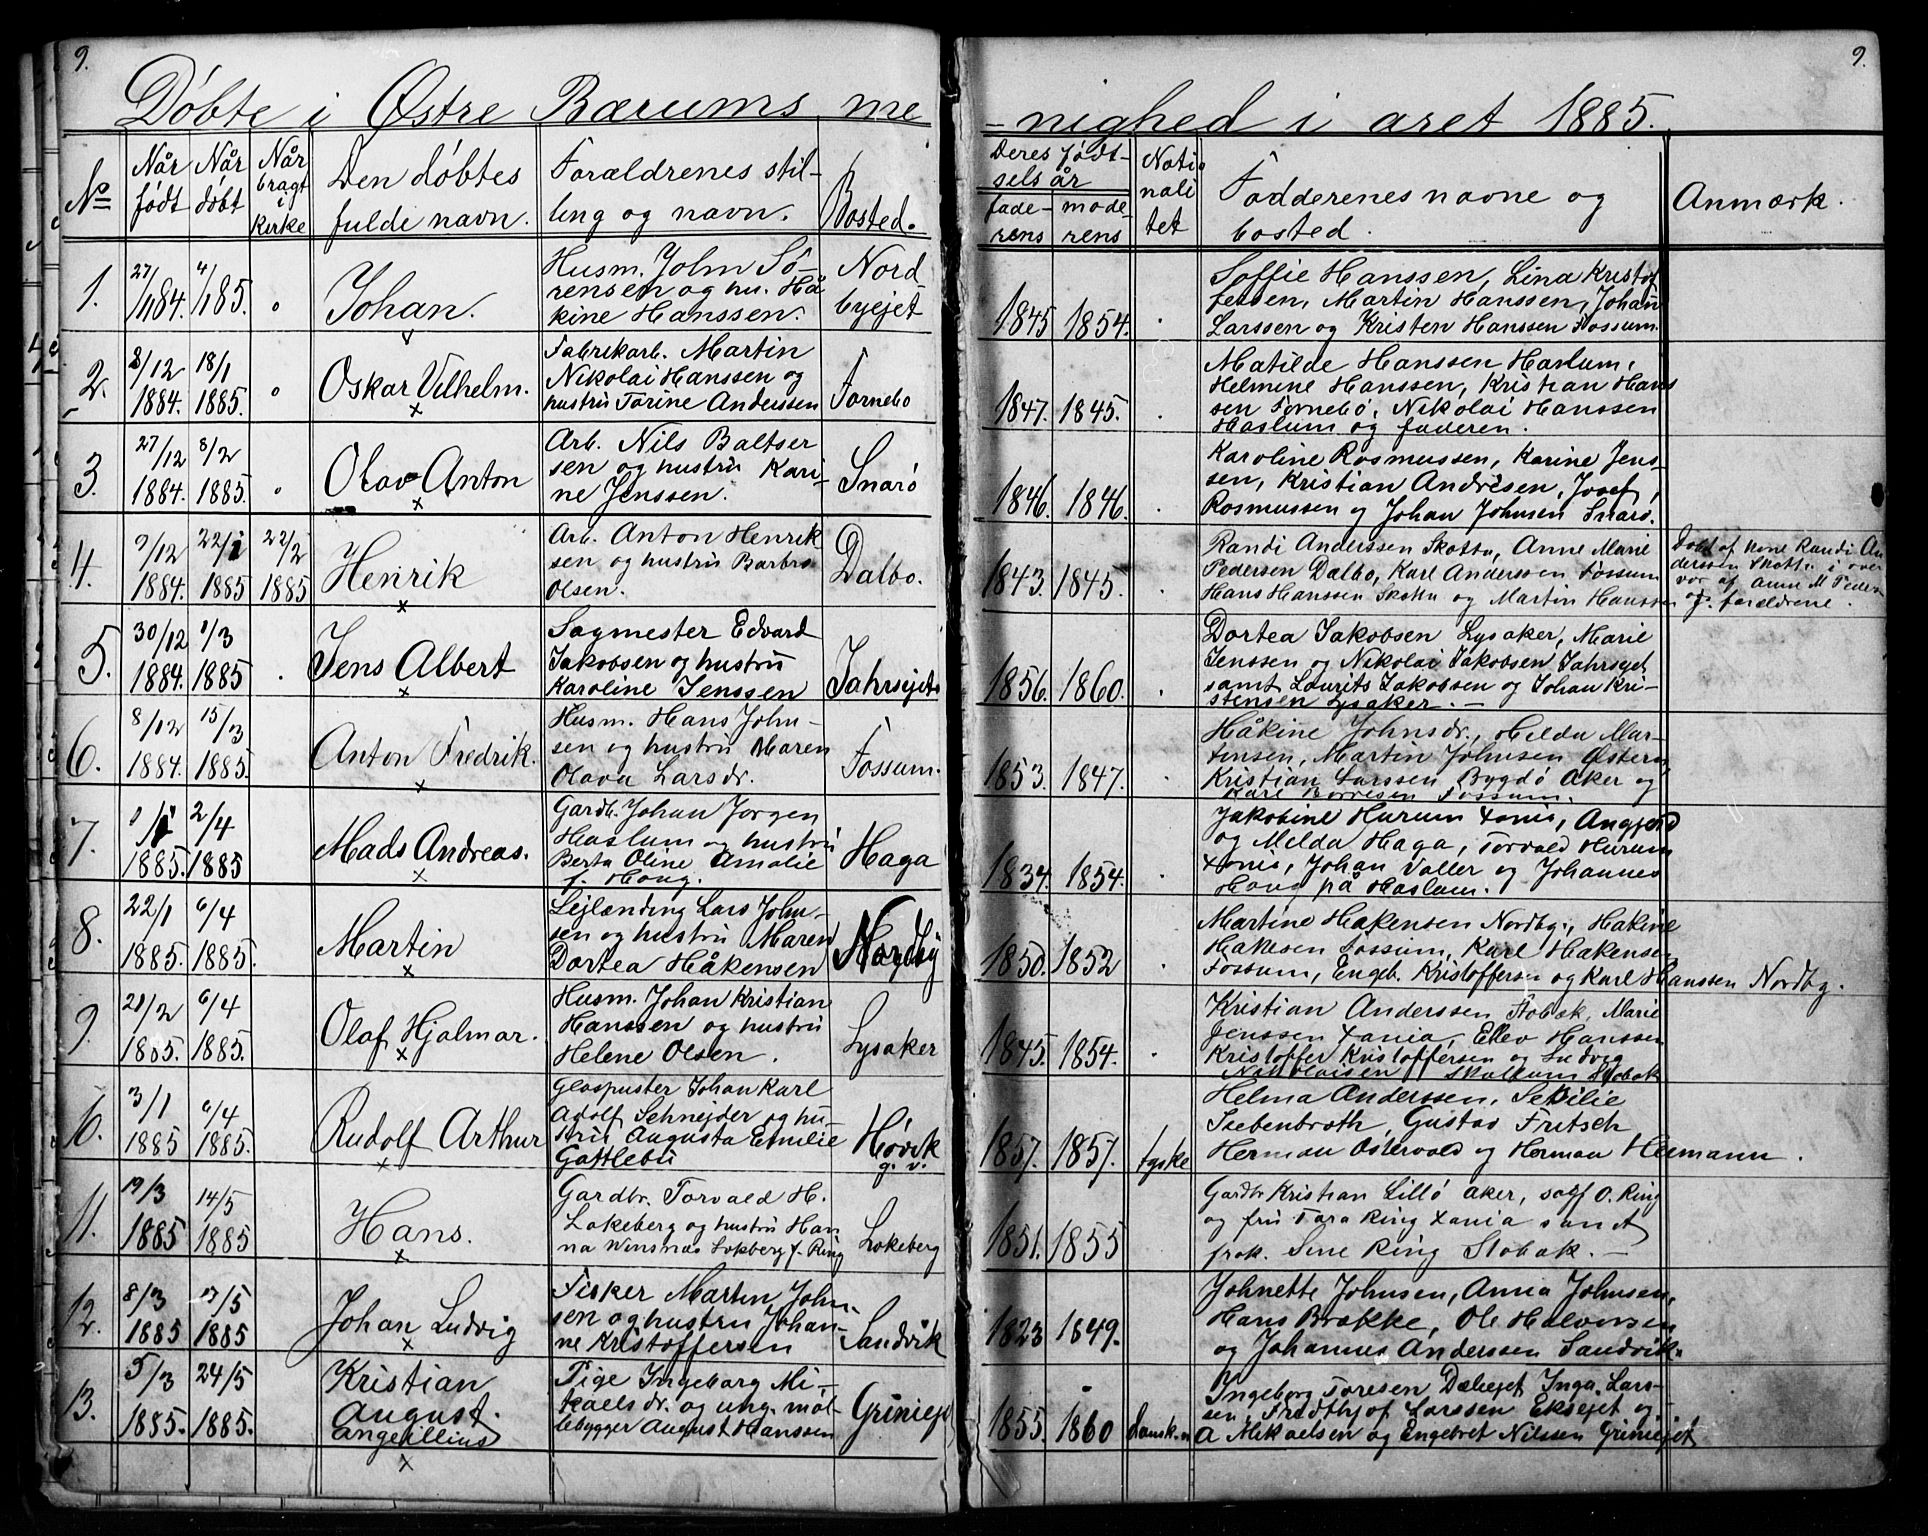 9.
9.
Døbte i Østre Bærums me
-nighed i aret 1885.
No
Når født
Når døbt
Når bragt i Kirke
Den døbtes fulde navn.
Forældrenes stil-
ling og navn.
Bosted.
Deres født-
sels år
fade-
rens
mode-
rens
Natio
nali
tet
Fadderenes navne og
bosted.
Anmærk.
1.
27/11 84.
4/1 85.
Johan.
Husm. John Sö-
rensen og hu. Hå
kine Hanssen.
Nord
byejet
1845
1854.
Soffie Hanssen, Lina Kristof
fersen, Martin Hanssen, Johan
Larssen og Kristen Hanssen Fossum.
2.
8/12
1884.
18/1
1885.
Oskar Vilhelm.
Fabrikarb. Martin
Nikolai Hanssen og
hustru Torine Anderssen
Fornebo
1847.
1845.
Matilde Hanssen Haslum,
Helmine Hanssen, Kristian Hans
sen Fornebö, Nikolai Hanssen
Haslum og faderen.
3.
27/12
1884.
8/2
1885.
Olav Anton
Arb. Nils Baltser
sen og hustru Kari-
ne Jenssen.
Snarø
1846.
1846.
Karoline Rosmussen, Karine Jens-
sen, Kristian Andresen, Josef
Rasmussen og Johan Johnsen Snarø.
4.
9/12
1884.
22/1
1885
22/2
1885
Henrik
Arb. Anton Henrik
sen og hustru Barbro
Olsen.
Dalbo.
1843.
1845.
Randi Anderssen Skotta, Anne Marie
Pedersen Dalbo, Karl Anderssen Fossum
Hans Hanssen Skotta og Martin Hanssen
Døbt af kone Randi An
derssen Skotta i over
vær af Anne M Peders
og forældrene.
5.
30/12
1884.
1/3
1885
Jens Albert
Sagmester Edvard
Jakobsen og hustru
Karoline Jenssen
Jahrsejets
1856.
1860.
Dortea Jakobsen Lysaker, Marie
Jenssen og Nikolai Jakobsen Jahrsejet
samt Laurits Jakobsen og Johan Kri-
stensen Lysaker. -
6.
8/12
1884.
15/3
1885.
Anton Fredrik.
Husm. Hans John-
sen og hustru Maren
Olava Larsdr.
Fossum.
1853.
1847.
Håkine Johnsdr., Helda Mar-
tinsen, Martin Johnsen Östern
Kristian Larssen Bygdö Aker og
Karl Borresen Fossum.
7.
1885.
2/4
1885
Mads Andreas.
Gardb. Johan Jørgen
Haslum og hustru
Berta Oline Amalie
f. Haug.
Haga
1834.
1854.
Jakobine Hurum Xania, Angjerd
og Melda Haga, Torvald Hurum
Xania, Johan Valler og Johannes
Haug på Haslum.
8.
22/1
1885.
6/4
1885.
Martin
Lejlænding Lars John-
sen og hustru Maren
Dortea Håkensen
Nordby
1850.
1852
Martine Håkensen Nordby, Håkine
Håkesen Fossum, Karl Håkensen
Fossum, Engeb. Kristoffersen og Karl Hanssen Nordby.
9.
21/2
1885.
6/4
1885.
Olaf Hjalmar.
Husm. Johan Kristian
Hanssen og hustru
Helene Olsen.
Lysaker
1845.
1854.
Kristian Anderssen Stabæk, Marie
Jenssen Xania, Ellev Hanssen
Kristoffer Kristoffersen og Ludvig
Nikolaisen Skallum Stabæk
10.
3/1
1885
6/4
1885.
Rudolf Arthur
Glaspuster Johan Karl
Adolf Schnejder og hu-
stru Augusta Emilie
Gottlebu
Høvik
g. v.
1857.
1857.
tyske
Helma Anderssen, Sesilie
Isebenbroth, Gustav Fritsch
Herman Ostervald og Herman Heimann.
11.
19/3
1885
14/5
1885
Hans.
Gardbr. Torvald H.
Løkeberg og hustru Han
na Winsnæs Løkberg f. Ring
Løkeberg
1851.
1855
Gardbr Kristian Lillö Aker, sagf. O. Ring
og fru Tara Ring Xania samt
frøk. Sine Ring Stabæk. -
12.
8/3
1885
17/5
1885
Johan Ludvig
Fisker Martin John-
sen og hustru Johan-
ne Kristoffersen
Sandvik
1823
1849.
Johnette Johnsen, Anna Johnsen,
Hans Brække, Ole Halvorsen
og Johannes Anderssen Sandvik.
13.
5/3
1885.
24/5
1885.
Kristian
August.
Angelllius
Pige Ingeborg Mi-
kaelsdr. og ung. møl-
lebygger August Hanssen
Griniejet
1855.
1860
dansk. n
Ingeborg Toresen Dælejet, Inga Lars-
sen, Fredthjof Larssen Eksejet og
A Mikaelsen og Engebret Nilssen Griniejet